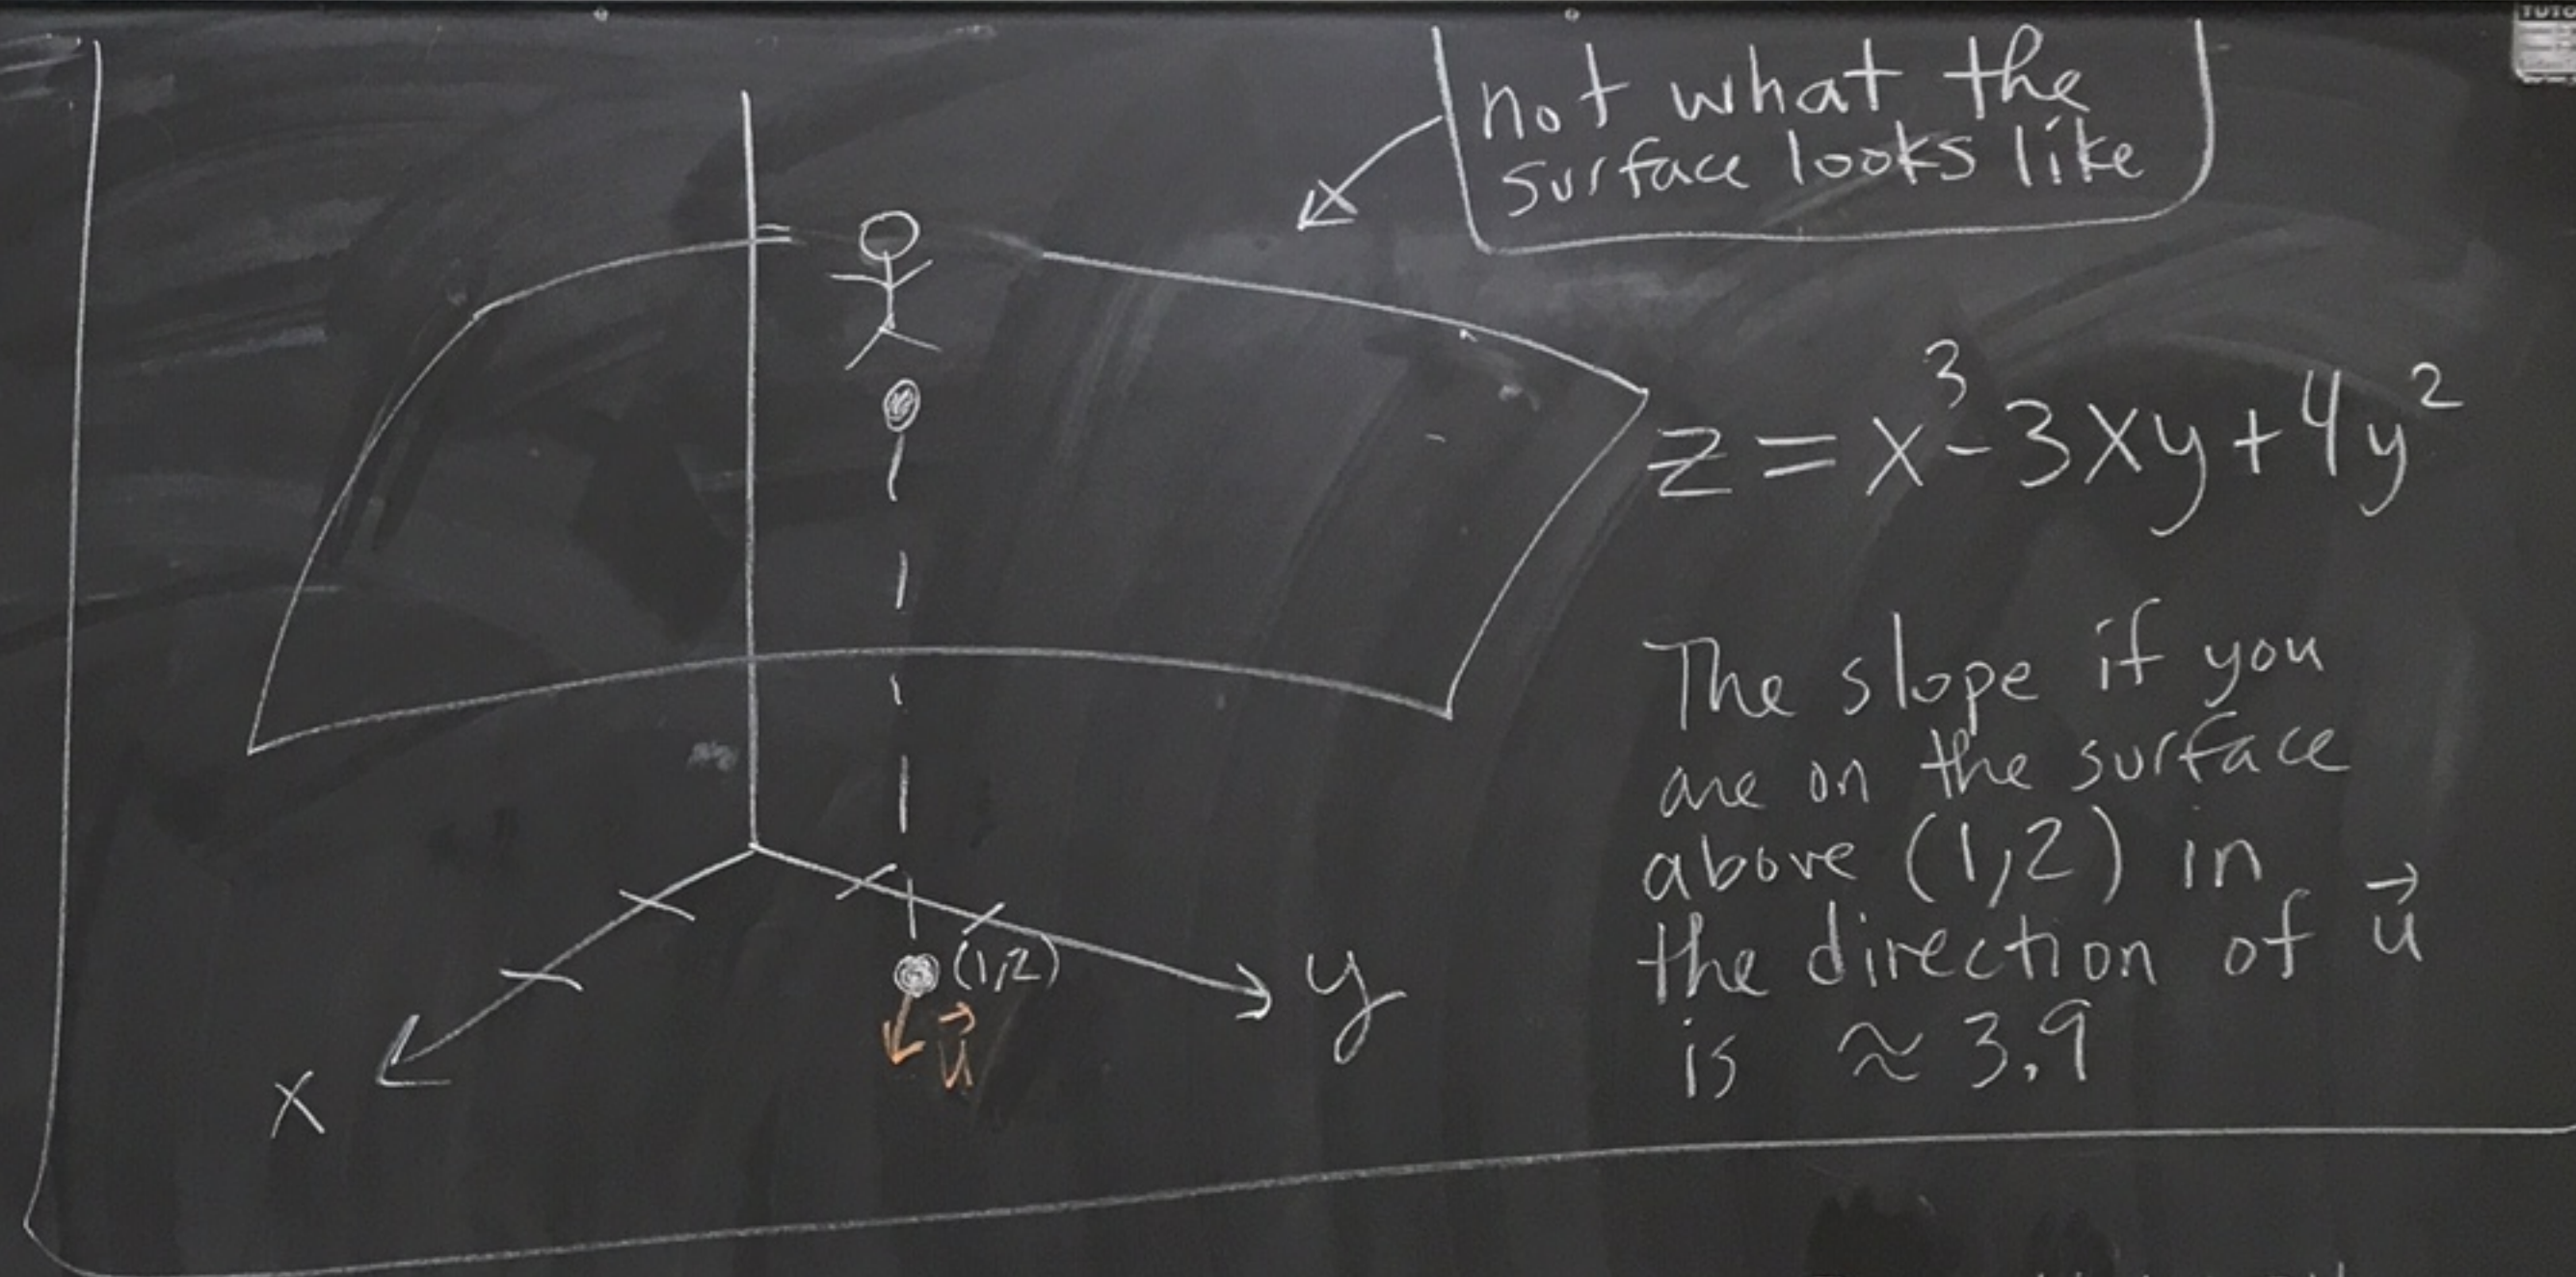 not what the
surface looks like
z = x³ - 3xy + 4y²
The slope if you
are on the surface
above (1,2) in
the direction of u⃗
is ≈ 3.9
(1,2)
u⃗
y
x
TUTO